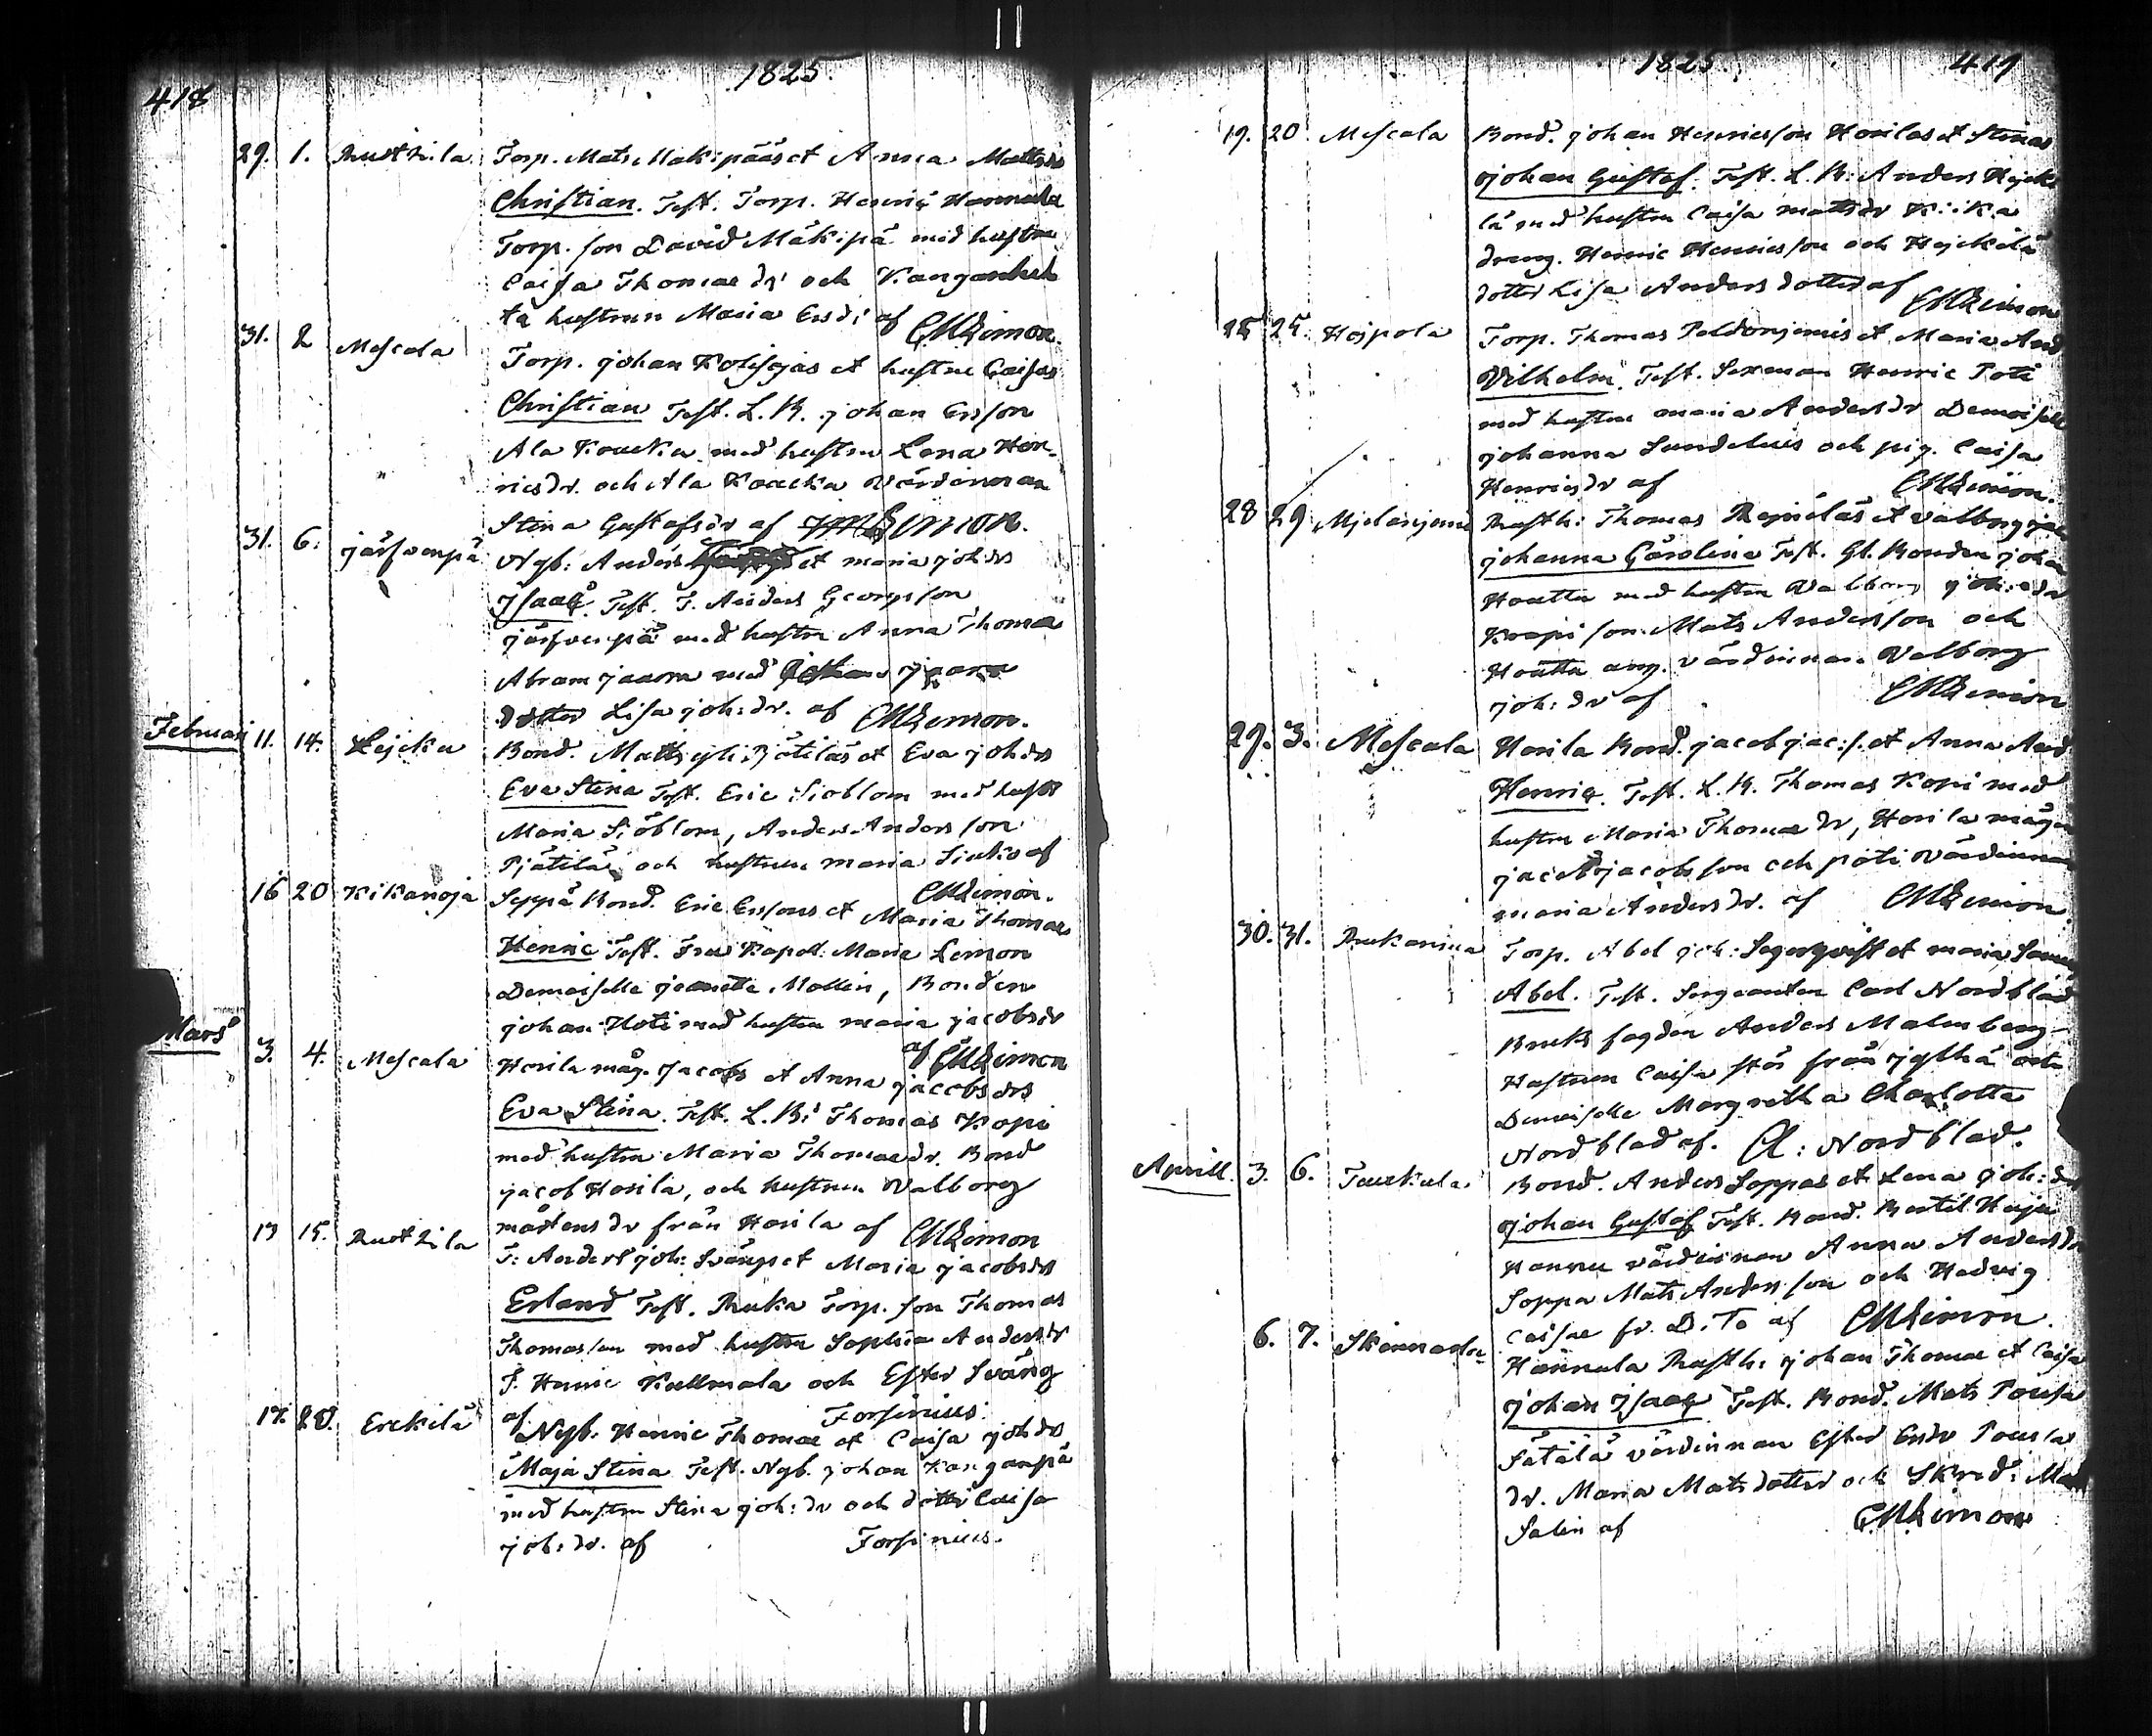 418
1825
29. 1. Rusthila Torp. Mats Makipääs et Anna Mattsdr
Christian. Test. Torp. Henric Hannula
Torp. son David Mäkipä med hustru
Caisa Thomae dr och Kangan
ta hustrun Maria Ersdr af CMLimon.
31. 2 Mescala Torp. johan Kolisojas et hustru Caisas
Christian Test. L. B. johan Ersson
Ala Koucka med hustru Lena Hen-
ricsdr. och Ala Koucka värdinnan
Stina Gustafsdr af CMLimon.
31. 6. järfvenpä Nyb: Anders et maria johdrs
Isaac. Test. T. Anders Georgsson
järfvenpä med hustru Anna Thomae
Abram jaara med jaara
dotter Lisa joh: dr. af CMLimon.
Februari 11. 14. Lejcku Bond. Matts yli Pjätiläs et Eva johdrs
Eva Stina Test. Eric Sioblom med hustr
Maria Siöblom, Anders Andersson
Pjätilä och hustrun maria af
CMLimon.
16 20 Kikanoja Seppä Bond. Eric Erssons et Maria Thomae
Henric Test. Fru Kapel. Maria Lemon
Demoiselle jeanette Mollin, Bonden
johan Hoti med hustru maria jacobsdr
af CMLimon
Mars 3. 4. Mescala Horila måg. Jacobs et Anna jacobsdrs
Eva Stina. Test. L. B. Thomas Kopi
med hustru Maria Thomaedr. Bond
jacob Horila, och hustrun Valborg
mårtensdr från Horila af CMLimon
13 15. Rusthila T: Anders joh: Svängs et Maria jacobsdr
Erland Test. Ruka Torp. son Thomas
Thomasson med hustru Sophia Andersdr
T. Henric Kallmala och Ester Sväng
af Forsinius.
17. 20. Erckilä Nyb. Henric Thomae et Caisa johdrs
Maja Stina Test. Nyb. johan Kanganpä
med hustru Stina joh: dr och dotter Caisa
joh: dr. af Forsinius.
1825. 419
19. 20 Mescala Bond. johan Henricsson Horilas et Stinas
johan Gustaf. Test. L. B. Anders Hejcki
lä med hustru Caisa mattsdr Kiika
dreng. Henric Henricsson och Hejckilä
dotter Lisa Anders dotter af CMLimon
25 25. Hojpola Torp. Thomas Peldonjemis et Maria And
Vilhelm. Test. Sexman Henric Poti
med hustru maria Andersdr Demoiselle
johanna Sundelius och pig. Caisa
Henricsdr af CMLimon.
28 29 Mjelonjemi Rusth: Thomas et Valborg jac
johanna Carolina Test. Gl. Bonden johan
Houtta med hustru Valborg joh: dr
Krapi son Mats Andersson och
Houtta ung. värdinnan Valborg
joh: dr af CMLimon
29. 3. Mescala Horila Bond. jacob jac: s. et Anna And
Henric. Test. L. B. Thomas Kopi med
hustru Maria Thomae dr, Horila mågen
jacob jacobsson och poti värdinnan
maria Andersdr. af CMLimon
30. 31. Torp. Abel joh: Segerqvist et maria
Abel. Test. Sergeanten Carl Nordblad
Bruks fogden Anders Malmberg
Hustrun Caisa från och
Demoiselle Margretha Charlotta
Nordblad af. C: Nordblad.
Aprill. 3. 6. Tuurkula Bond. Anders Soppas et Lena joh: dr
johan Gustaf Test. Bond. Bertil Huja
Hannu värdinnan Anna Andersdr
Soppa Mats Andersson och Hedvig
Caisae fr. D: To af CMLimon.
6. 7. Skinnarla Hannula Rusth: johan Thomae et Caisa
johan Isaac Test. Bond. Mats Pousa
Sätälä värdinnan Ester Ersdr Pousa
dr. Maria Mats dotter och Skred:
Salin af CMLimon